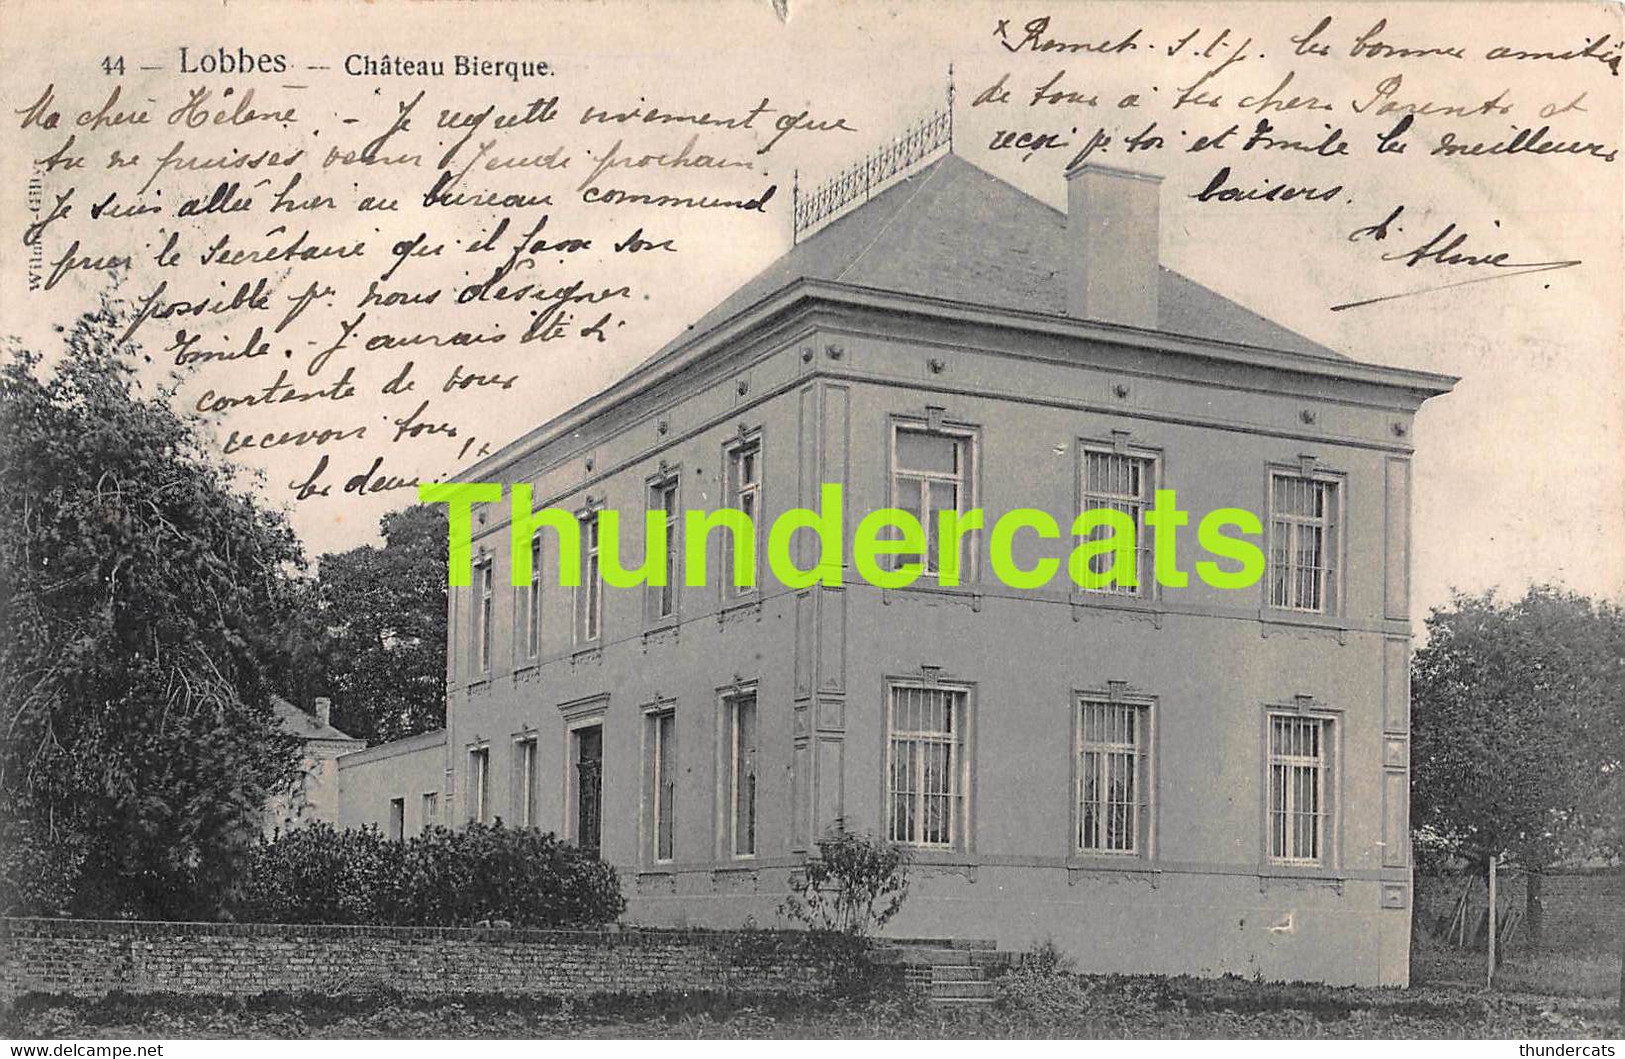 44 — Lobbes — Château Bierque.
Ma chère Hélène. - Je regrette vivement que
tu ne puisses venir Jeudi prochain.
Je suis allée hier au bureau communal
prier le secrétaire qu'il fasse son
possible pr. nous désigner
Emile. - J'aurais été si
contente de vous
recevoir tous
les deux!
x Remets. s.t.p. les bonnes amitiés
de tous à tes chers Parents et
reçois pr toi et Emile les meilleurs
baisers.
Aline
Gilly
Thundercats
thundercats